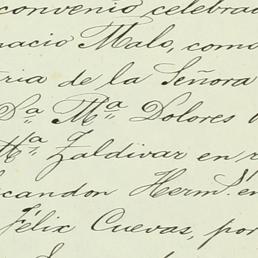 convenio celebrad
nacio Malo, como
ria de la Señora
Dª Mª Dolores
Mª Zaldivar en r
scandon Hermˢ. en
Félix Cuevas, por